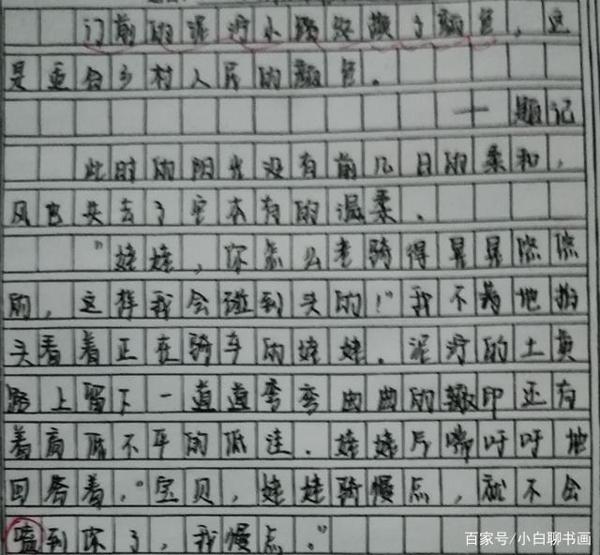 门前的泥泞小路终换了颜色，这
是蛋合乡村人民的颜色。
——题记
此时的阳光没有前几日的柔和，
风也失去了它本有的温柔。
"娃娃，你怎么老骑得晃晃悠悠
的，这样我会碰到头的！"我不满地抬
头看着正在骑车的娃娃。泥泞的土黄
路上留下一道道弯弯曲曲的辙印还有
着高低不平的低洼。娃娃气喘吁吁地
回答着，"宝贝，娃娃骑慢点，就不会
磕到你了，我慢点。"
百家号/小白聊书画